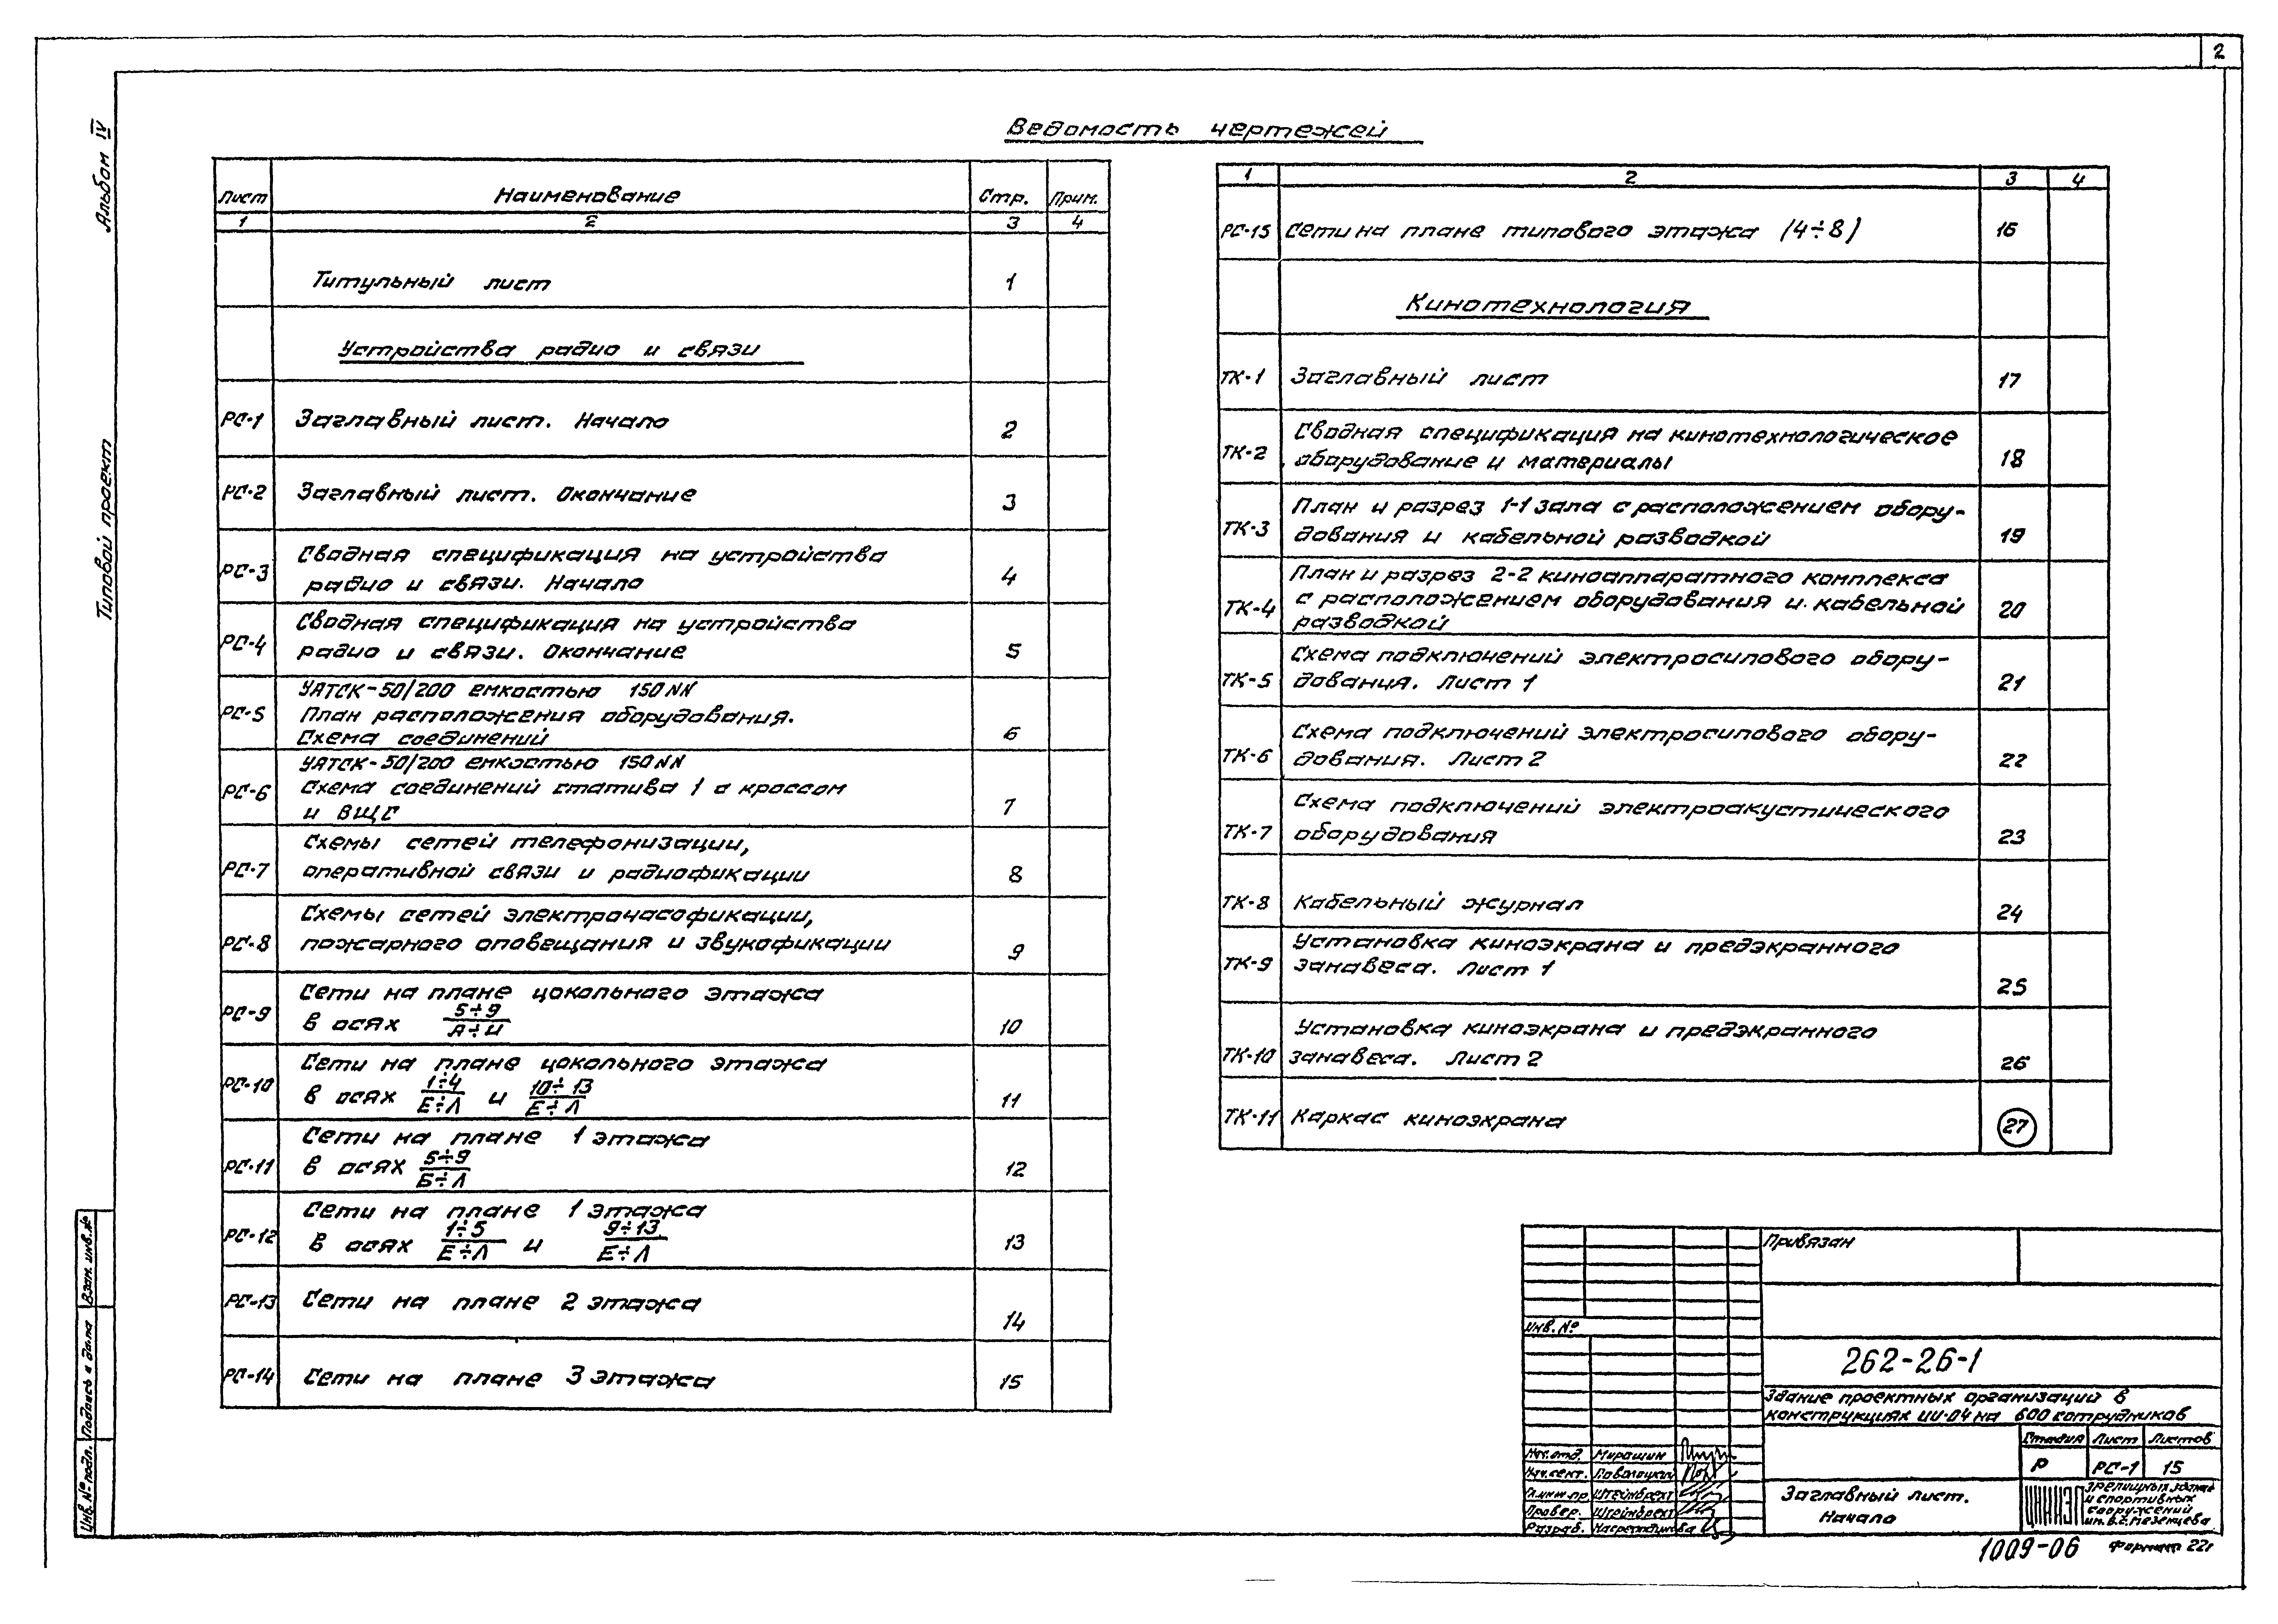 2
Альбом IV
Типовой проект
Ведомость чертежей
Лист Наименование Стр. Прим.
1 2 3 4
Титульный лист 1
Устройства радио и связи
РС-1 Заглавный лист. Начало 2
РС-2 Заглавный лист. Окончание 3
РС-3 Сводная спецификация на устройства
радио и связи. Начало 4
РС-4 Сводная спецификация на устройства
радио и связи. Окончание 5
УАТСК-50/200 емкостью 150 NN
РС-5 План расположения оборудования.
Схема соединений 6
УАТСК-50/200 емкостью 150 NN
РС-6 Схема соединений статива 1 с кроссом
и ВЩС 7
Схемы сетей телефонизации,
РС-7 оперативной связи и радиофикации 8
Схемы сетей электрочасофикации,
РС-8 пожарного оповещания и звукофикации 9
Сети на плане цокольного этажа
РС-9 в осях 5÷9/А÷И 10
Сети на плане цокольного этажа
РС-10 в осях 1÷4/Е÷Л и 10÷13/Е÷Л 11
Сети на плане 1 этажа
РС-11 в осях 5÷9/Б÷Л 12
Сети на плане 1 этажа
РС-12 в осях 1÷5/Е÷Л и 9÷13/Е÷Л 13
РС-13 Сети на плане 2 этажа 14
РС-14 Сети на плане 3 этажа 15
1 2 3 4
РС-15 Сети на плане типового этажа (4÷8) 16
Кинотехнология
ТК-1 Заглавный лист 17
Сводная спецификация на кинотехнологическое
ТК-2 оборудование и материалы 18
План и разрез 1-1 зала с расположением обору-
ТК-3 дования и кабельной разводкой 19
План и разрез 2-2 киноаппаратного комплекса
ТК-4 с расположением оборудования и кабельной 20
разводкой
Схема подключений электросилового обору-
ТК-5 дования. Лист 1 21
Схема подключений электросилового обору-
ТК-6 дования. Лист 2 22
Схема подключений электроакустического
ТК-7 оборудования 23
ТК-8 Кабельный журнал 24
Установка киноэкрана и предэкранного
ТК-9 занавеса. Лист 1 25
Установка киноэкрана и предэкранного
ТК-10 занавеса. Лист 2 26
ТК-11 Каркас киноэкрана 27
Привязан
инв. №
262-26-1
Здание проектных организаций в
конструкциях ИИ-04 на 600 сотрудников
Стадия Лист Листов
Р РС-1 15
Заглавный лист.
Начало
ЦНИИЭП зрелищных зданий
и спортивных
сооружений
им. Б.С. Мезенцева
Нач.отд. Мирошин
Нач.сект. Паволоцкий
Гл.инж.пр. Штейнбрехт
Провер. Штейнбрехт
Разраб.
1009-06 Формат 22г
Взам. инв. №
Подпись и дата
Инв. № подл.